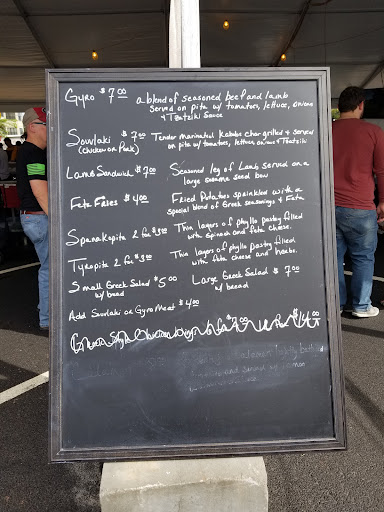 Gyro $7.00 a blend of seasoned beef and lamb
served on pita w/ tomatoes, lettuce, onions
& Tzatziki Sauce
Souvlaki $7.00 Tender marinated Kabobs char grilled & served
(Chicken or Pork) on pita w/ tomatoes, lettuce, onions & Tzatziki
Lamb Sandwich $7.00 Seasoned leg of Lamb served on a
large sesame seed bun
Feta Fries $4.00 Fried Potatoes sprinkled with a
special blend of Greek seasonings & Feta
Spanakopita 2 for $3.00 Thin layers of phyllo pastry filled
with spinach and feta cheese.
Tyropita 2 for $3.00 Thin layers of phyllo pastry filled
with feta cheese and herbs.
Small Greek Salad $5.00 Large Greek Salad $7.00
w/ bread w/ bread
Add Souvlaki or Gyro Meat $4.00
Greek Style Chicken Wings 6 for $7.00